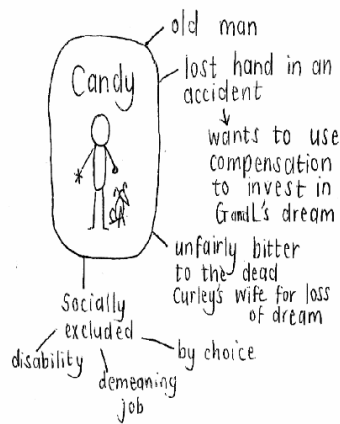 Candy
old man
lost hand in an
accident
wants to use
compensation
to invest in
GandL's dream
unfairly bitter
to the dead
Curley's wife for loss
of dream
Socially
excluded
disability
demeaning
job
by choice